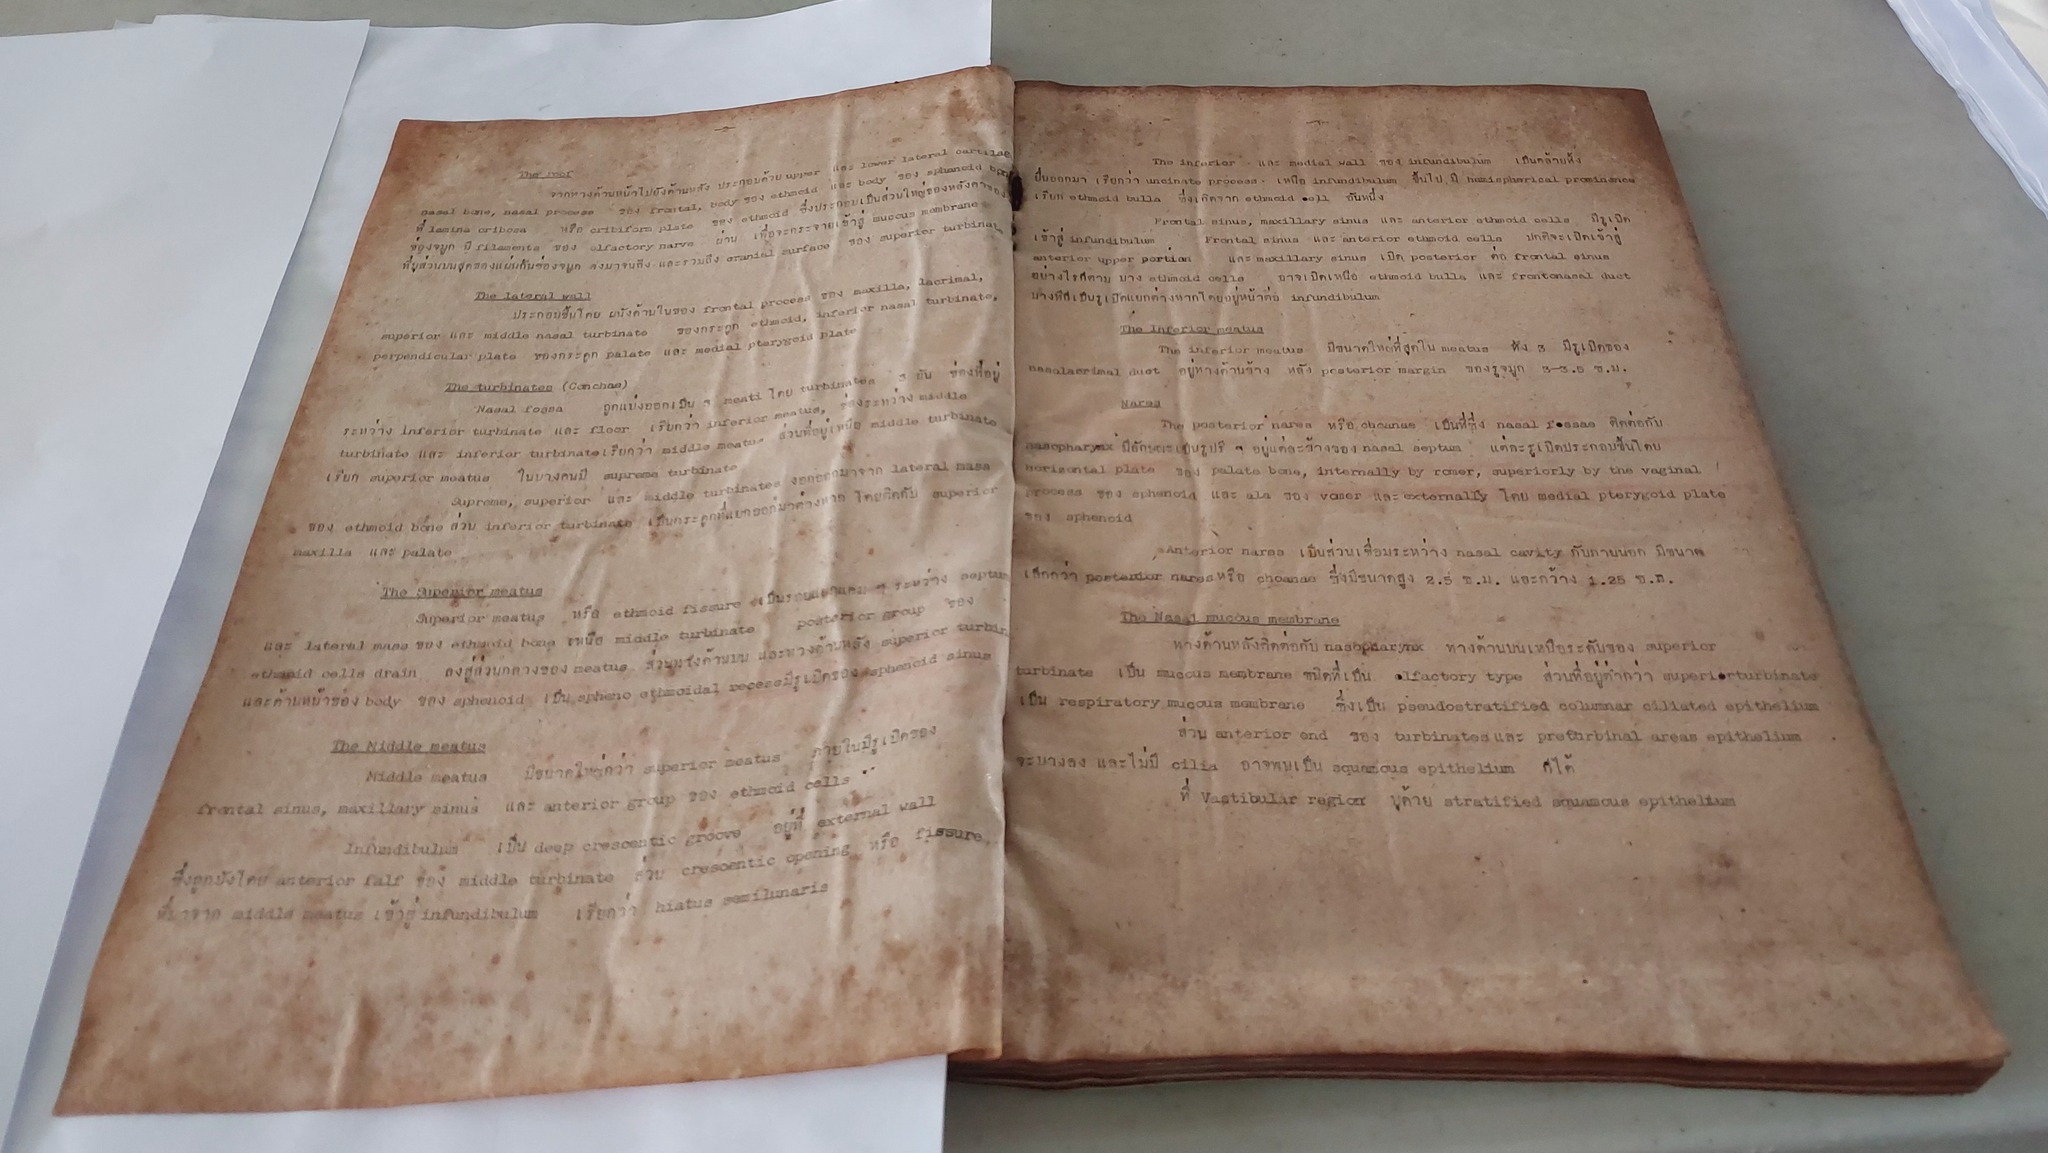 The roof
จากทางด้านหน้าไปยังด้านหลัง ประกอบด้วย upper และ lower lateral cartilae
nasal bone, nasal process ของ frontal, body ของ ethmoid และ body ของ sphenoid bone
ที่ lamina cribosa หรือ cribiform plate ของ ethmoid ซึ่งประกอบเป็นส่วนใหญ่ของหลังคาของ
ช่องจมูก มี filaments ของ olfactory narve ผ่าน เพื่อจะกระจายเข้าสู่ mucous membrane
ที่บุส่วนบนสุดของแผ่นกั้นช่องจมูก ลงมาจนถึง และรวมถึง cranial surface ของ superior turbinate
The lateral wall
ประกอบขึ้นโดย ผนังด้านในของ frontal process ของ maxilla, lacrimal,
superior และ middle nasal turbinate ของกระดูก ethmoid, inferior nasal turbinate,
perpendicular plate ของกระดูก palate และ medial pterygoid plate
The turbinates (Conchae)
Nasal fossa ถูกแบ่งออกเป็น 3 meati โดย turbinates 3 อัน ช่องที่อยู่
ระหว่าง inferior turbinate และ floor เรียกว่า inferior meatus, ช่องระหว่าง middle
turbinate และ inferior turbinate เรียกว่า middle meatus ส่วนที่อยู่เหนือ middle turbinate
เรียก superior meatus ในบางคนมี supreme turbinate
Supreme, superior และ middle turbinates งอกออกมาจาก lateral mass
ของ ethmoid bone ส่วน inferior turbinate เป็นกระดูกที่แยกออกมาต่างหาก โดยติดกับ superior
maxilla และ palate
The Superior meatus
Superior meatus หรือ ethmoid fissure เป็นร่องแคบ ๆ ระหว่าง septum
และ lateral mass ของ ethmoid bone เหนือ middle turbinate posterior group ของ
ethmoid cells drain ลงสู่ส่วนกลางของ meatus ส่วนทางด้านบน และทางด้านหลัง superior turbin
และด้านหน้าของ body ของ sphenoid เป็น spheno ethmoidal recess มีรูเปิดของ sphenoid sinus
The Middle meatus
Middle meatus มีขนาดใหญ่กว่า superior meatus ภายในมีรูเปิดของ
frontal sinus, maxillary sinus และ anterior group ของ ethmoid cells
Infundibulum เป็น deep crescentic groove อยู่ที่ external wall
ซึ่งถูกบังโดย anterior falf ของ middle turbinate ส่วน crescentic opening หรือ fissure
ที่มาจาก middle meatus เข้าสู่ infundibulum เรียกว่า hiatus semilunaris
The inferior และ medial wall ของ infundibulum เป็นคล้ายหิ้ง
ยื่นออกมา เรียกว่า uncinate process เหนือ infundibulum ขึ้นไป มี hemispherical prominence
เรียก ethmoid bulla ซึ่งเกิดจาก ethmoid cell อันหนึ่ง
Frontal sinus, maxillary sinus และ anterior ethmoid cells มีรูเปิด
เข้าสู่ infundibulum Frontal sinus และ anterior ethmoid cells ปกติจะเปิดเข้าสู่
anterior upper portian และ maxillary sinus เปิด posterior ต่อ frontal sinus
อย่างไรก็ตาม บาง ethmoid cells อาจเปิดเหนือ ethmoid bulla และ frontonasal duct
บางทีก็เป็นรูเปิดแยกต่างหากโดยอยู่หน้าต่อ infundibulum
The Inferior meatus
The inferior meatus มีขนาดใหญ่ที่สุดใน meatus ทั้ง 3 มีรูเปิดของ
nasolacrimal duct อยู่ทางด้านข้าง หลัง posterior margin ของรูจมูก 3-3.5 ซ.ม.
Nares
The posterior nares หรือ choanae เป็นที่ซึ่ง nasal fossae ติดต่อกับ
nasopharynx มีลักษณะเป็นรูปรี ๆ อยู่แต่ละข้างของ nasal septum แต่ละรูเปิดประกอบขึ้นโดย
horizontal plate ของ palate bone, internally by romer, superiorly by the vaginal
process ของ sphenoid และ ala ของ vomer และ externally โดย medial pterygoid plate
ของ sphenoid
Anterior nares เป็นส่วนเชื่อมระหว่าง nasal cavity กับภายนอก มีขนาด
เล็กกว่า posterior nares หรือ choanae ซึ่งมีขนาดสูง 2.5 ซ.ม. และกว้าง 1.25 ซ.ม.
The Nasal mucous membrane
ทางด้านหลังติดต่อกับ nasopharynx ทางด้านบนเหนือระดับของ superior
turbinate เป็น mucous membrane ชนิดที่เป็น olfactory type ส่วนที่อยู่ต่ำกว่า superior turbinate
เป็น respiratory mucous membrane ซึ่งเป็น pseudostratified columnar ciliated epithelium
ส่วน anterior end ของ turbinates และ preturbinal areas epithelium
จะบางลง และไม่มี cilia อาจพบเป็น squamous epithelium ก็ได้
ที่ Vastibular region บุด้วย stratified squamous epithelium